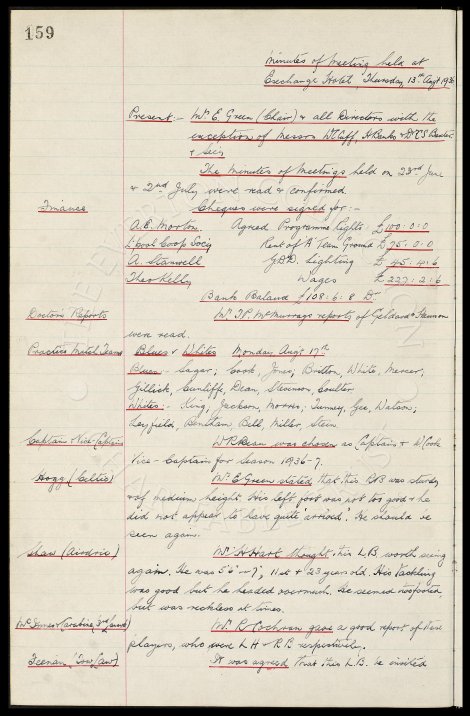 159
Minutes of Meeting held at
Exchange Hotel, Thursday, 13th Augt 1936
Present:- Mr. E. Green (Chair) & all Directors with the
exception of Messrs W.C. Cuff, A. Banks & Dr C.S. Baxter
& Secy
The Minutes of Meetings held on 23rd June
& 2nd July were read & confirmed.
Finance
Cheques were signed for:-
A.E. Morton. Agreed Programme Rights £100:0:0
L'pool Coop Socy Rent of A Team Ground £75:0:0
A. Stanwell G.D. Lighting £45:4:6
Theo Kelly Wages £227:2:6
Bank Balance £108:6:8 Dr
Doctors Reports
Mr. J.P. McMurrays reports of Geldard & Stevenson
were read
Practice Match Teams
Blues v Whites Monday Augt 17th
Blues - Sagar; Cook, Jones, Britton, White, Mercer,
Gillick, Cunliffe, Dean, Stevenson, Coulter
Whites:- King, Jackson, Morris; Tunney, Gee, Watson;
Leyfield, Bentham, Bell, Miller, Stein
Captain & Vice-Captain
W.R. Dean was chosen as Captain & W. Cook
Vice-Captain for Season 1936-7.
Hogg (Celtic)
Mr. E. Green stated that this R.B was sturdy
& of medium height. His left foot was not too good & he
did not appear to have quite 'arrived'. He should be
seen again.
Shaw (Airdrie)
Mr. H. Hart thought this L.B. worth seeing
again. He was 5'6" - 7", 11 st & 23 years old. His tackling
was good but he headed overmuch. He seemed
but was reckless at times.
Mr. R. Cochran gave a good report of these
players, who were L.H & R.B respectively.
Feenan (Tow Law)
It was agreed that this L.B. be invited